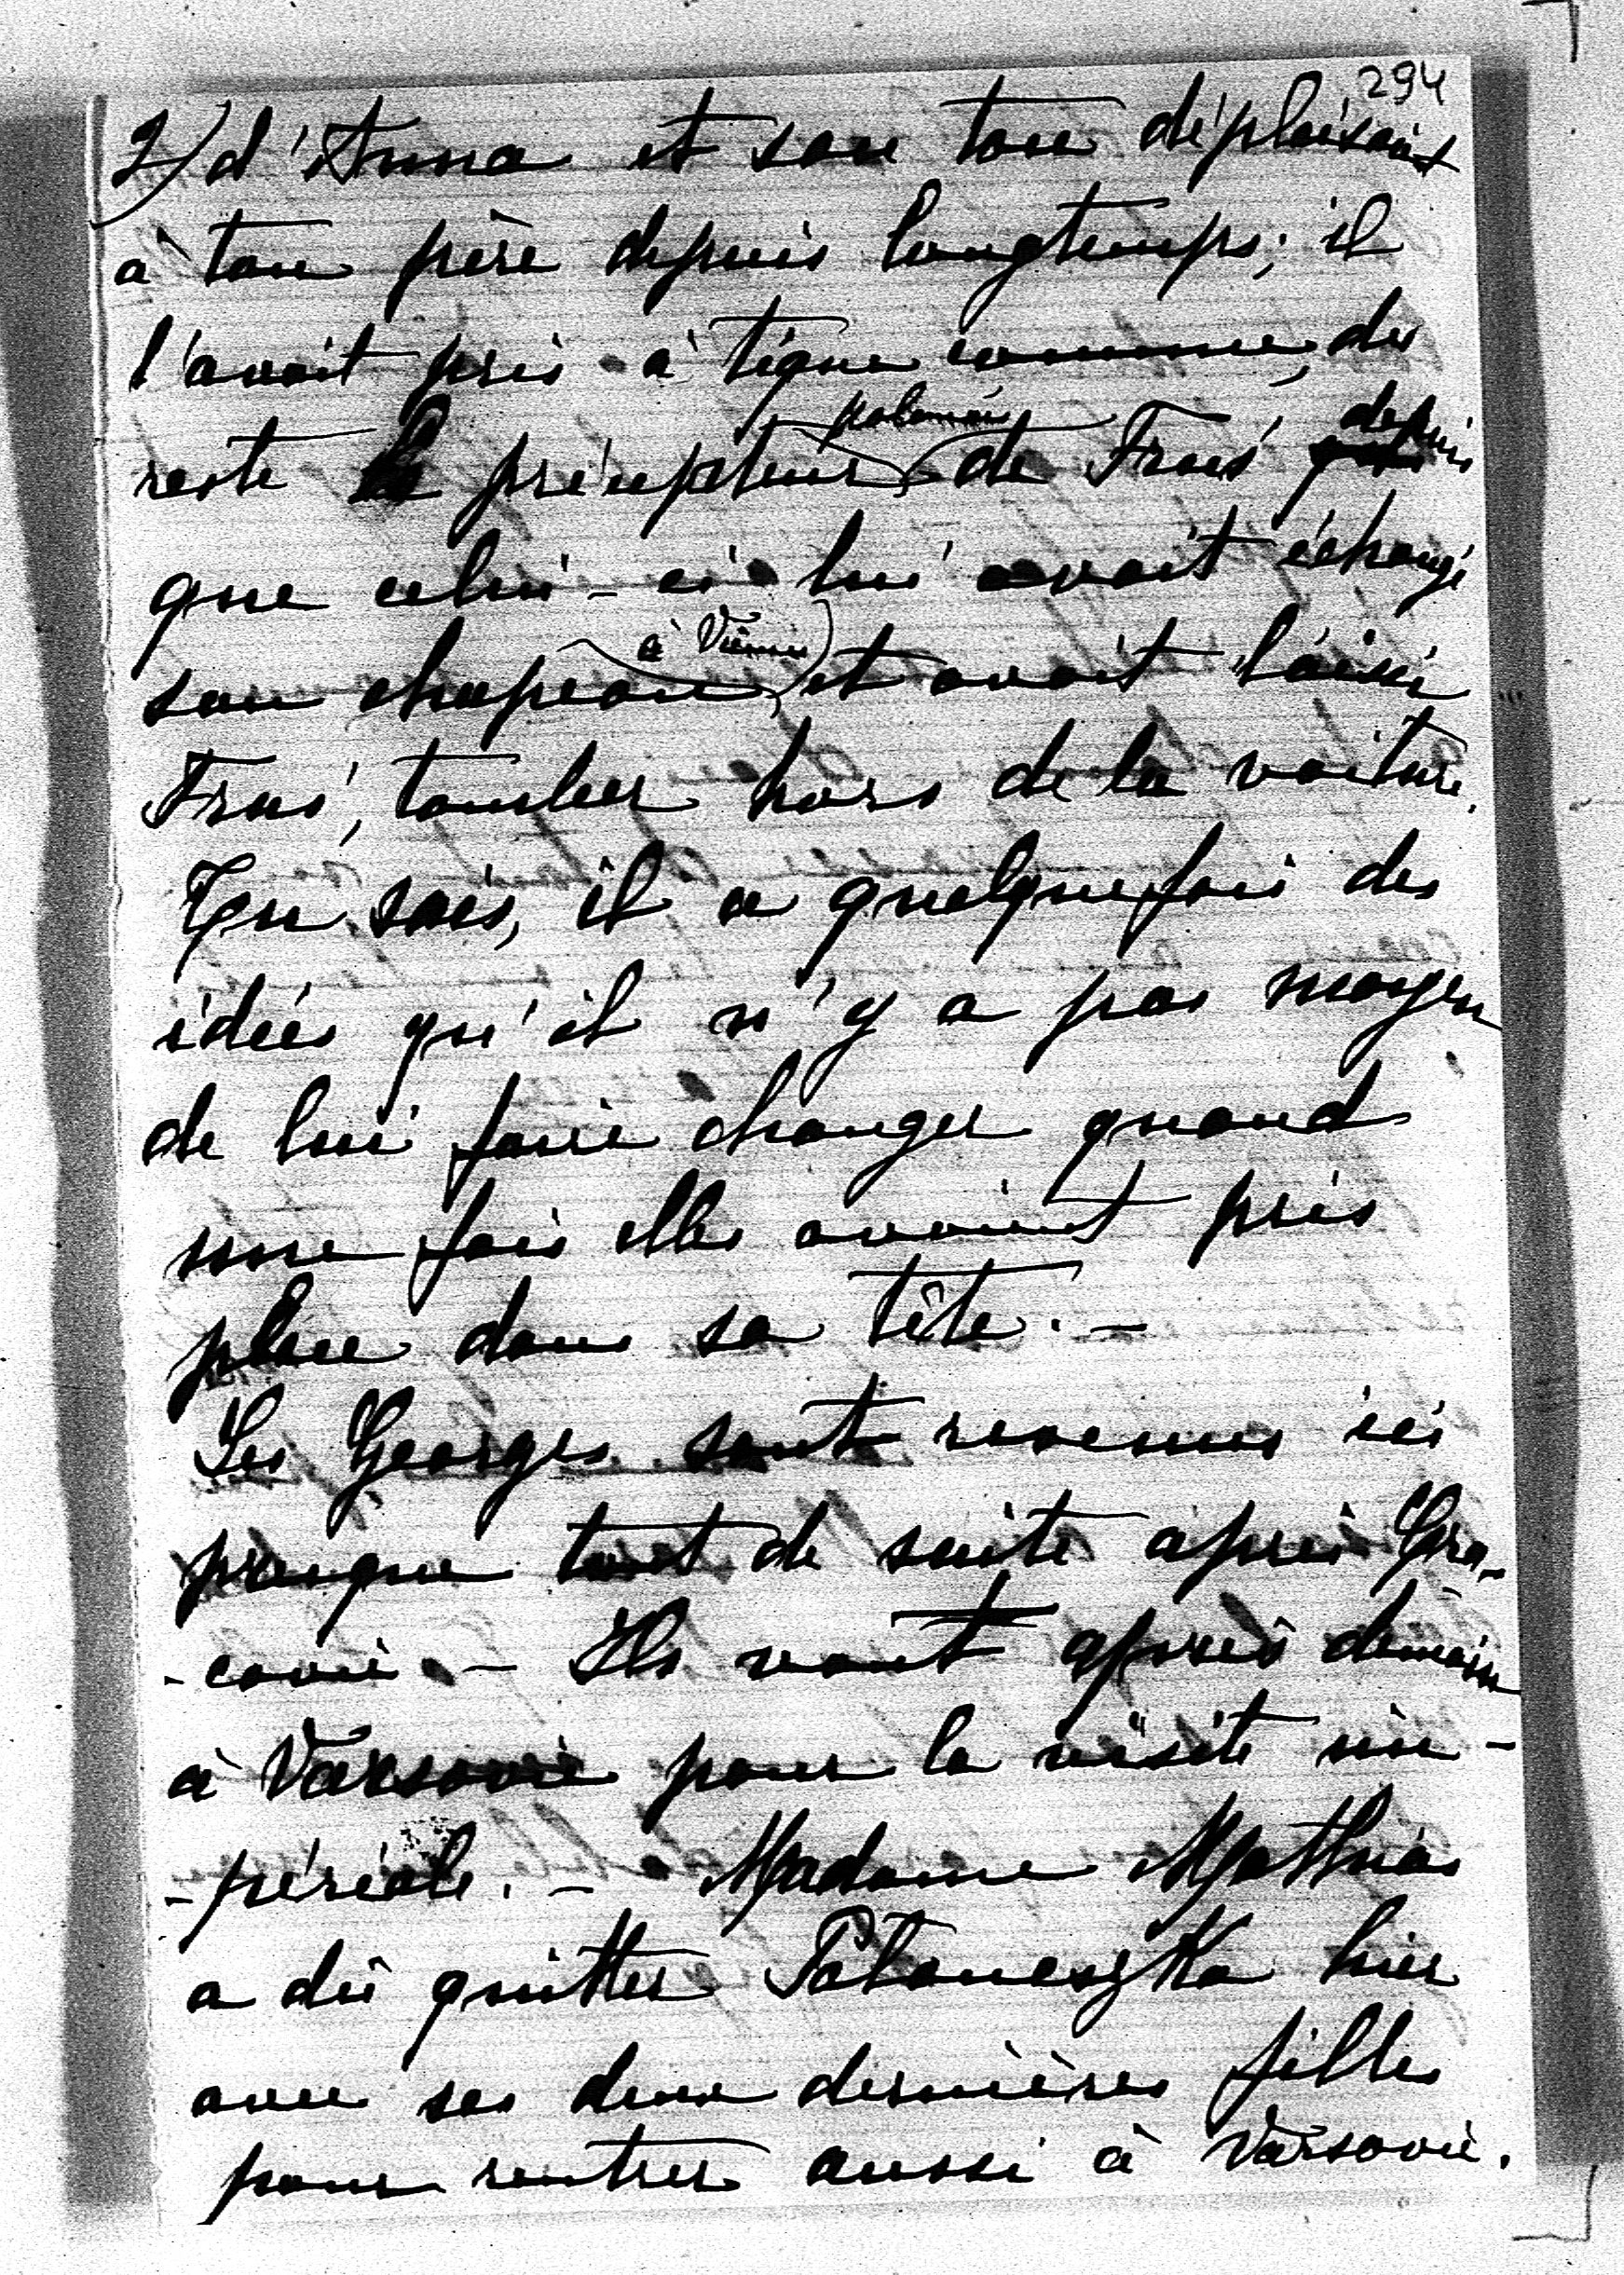 294
2) d'Anna et son ton déplaisait
à ton père depuis longtemps; il
l'avait pris à tigne comme, du
reste le précepteur polonais de Frus' depuis
que celui-ci lui avait échangé
son chapeau à Vienne et avait laissé
Frus', tomber hors de la voiture.
Tu sais, il a quelquefois des
idées qu'il n'y a pas moyen
de lui faire changer quand
une fois elles avaient pris
place dans sa tête. –
Les Georges sont revenus ici
presque tout de suite après Cra-
-covie. – Ils vont après demain
à Varsovie pour la visite im-
-périale. – Madame Mathias
a dû quitter hier
avec ses deux dernières filles
pour rentrer aussi à Varsovie.